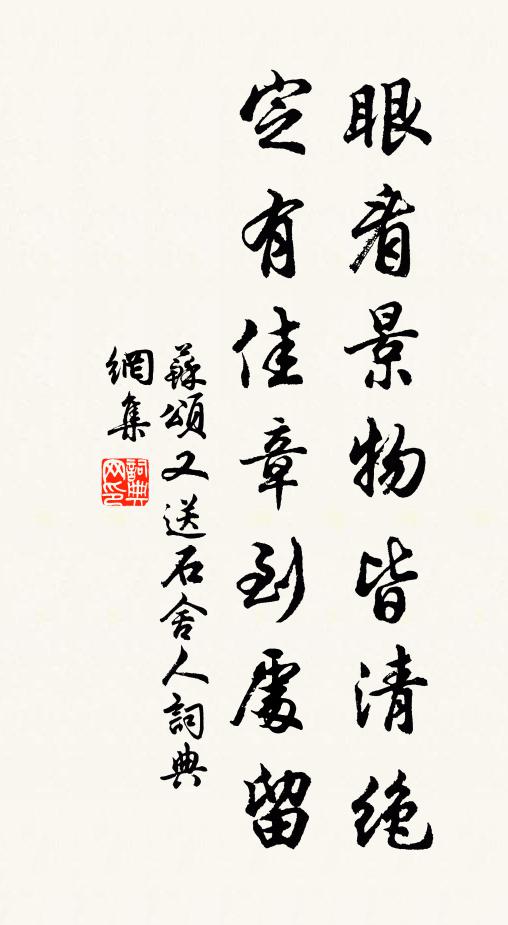 眼看景物皆清绝
定有佳章到處留
蘇頌又送石舍人詞典
網集
詞典
网印